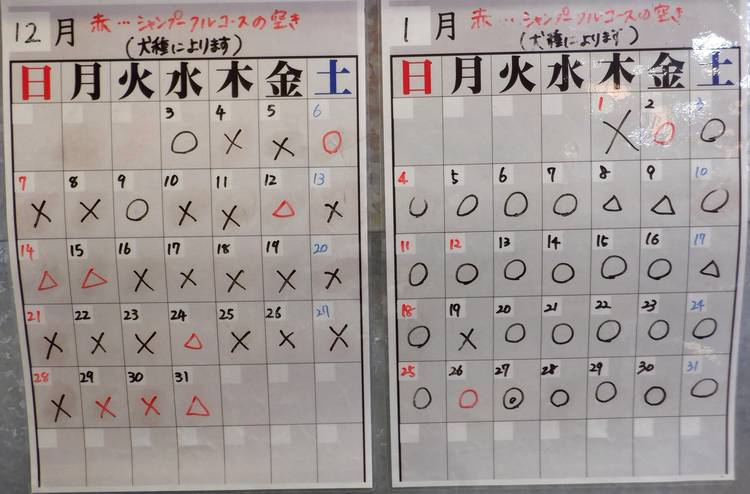 12月 赤…シャンプーフルコースの空き
(犬種によります)
日 月 火 水 木 金 土
3 4 5 6
○ × × ○
7 8 9 10 11 12 13
× × ○ × × △ ×
14 15 16 17 18 19 20
△ △ × × × × ×
21 22 23 24 25 26 27
× × × △ × × ×
28 29 30 31
× × × △
1月 赤…シャンプーフルコースの空き
(犬種によります)
日 月 火 水 木 金 土
1 2 3
× ○ ○
4 5 6 7 8 9 10
○ ○ ○ ○ △ △ ○
11 12 13 14 15 16 17
○ ○ ○ ○ ○ ○ △
18 19 20 21 22 23 24
○ × ○ ○ ○ ○ ○
25 26 27 28 29 30 31
○ ○ ◎ ○ ○ ○ ○